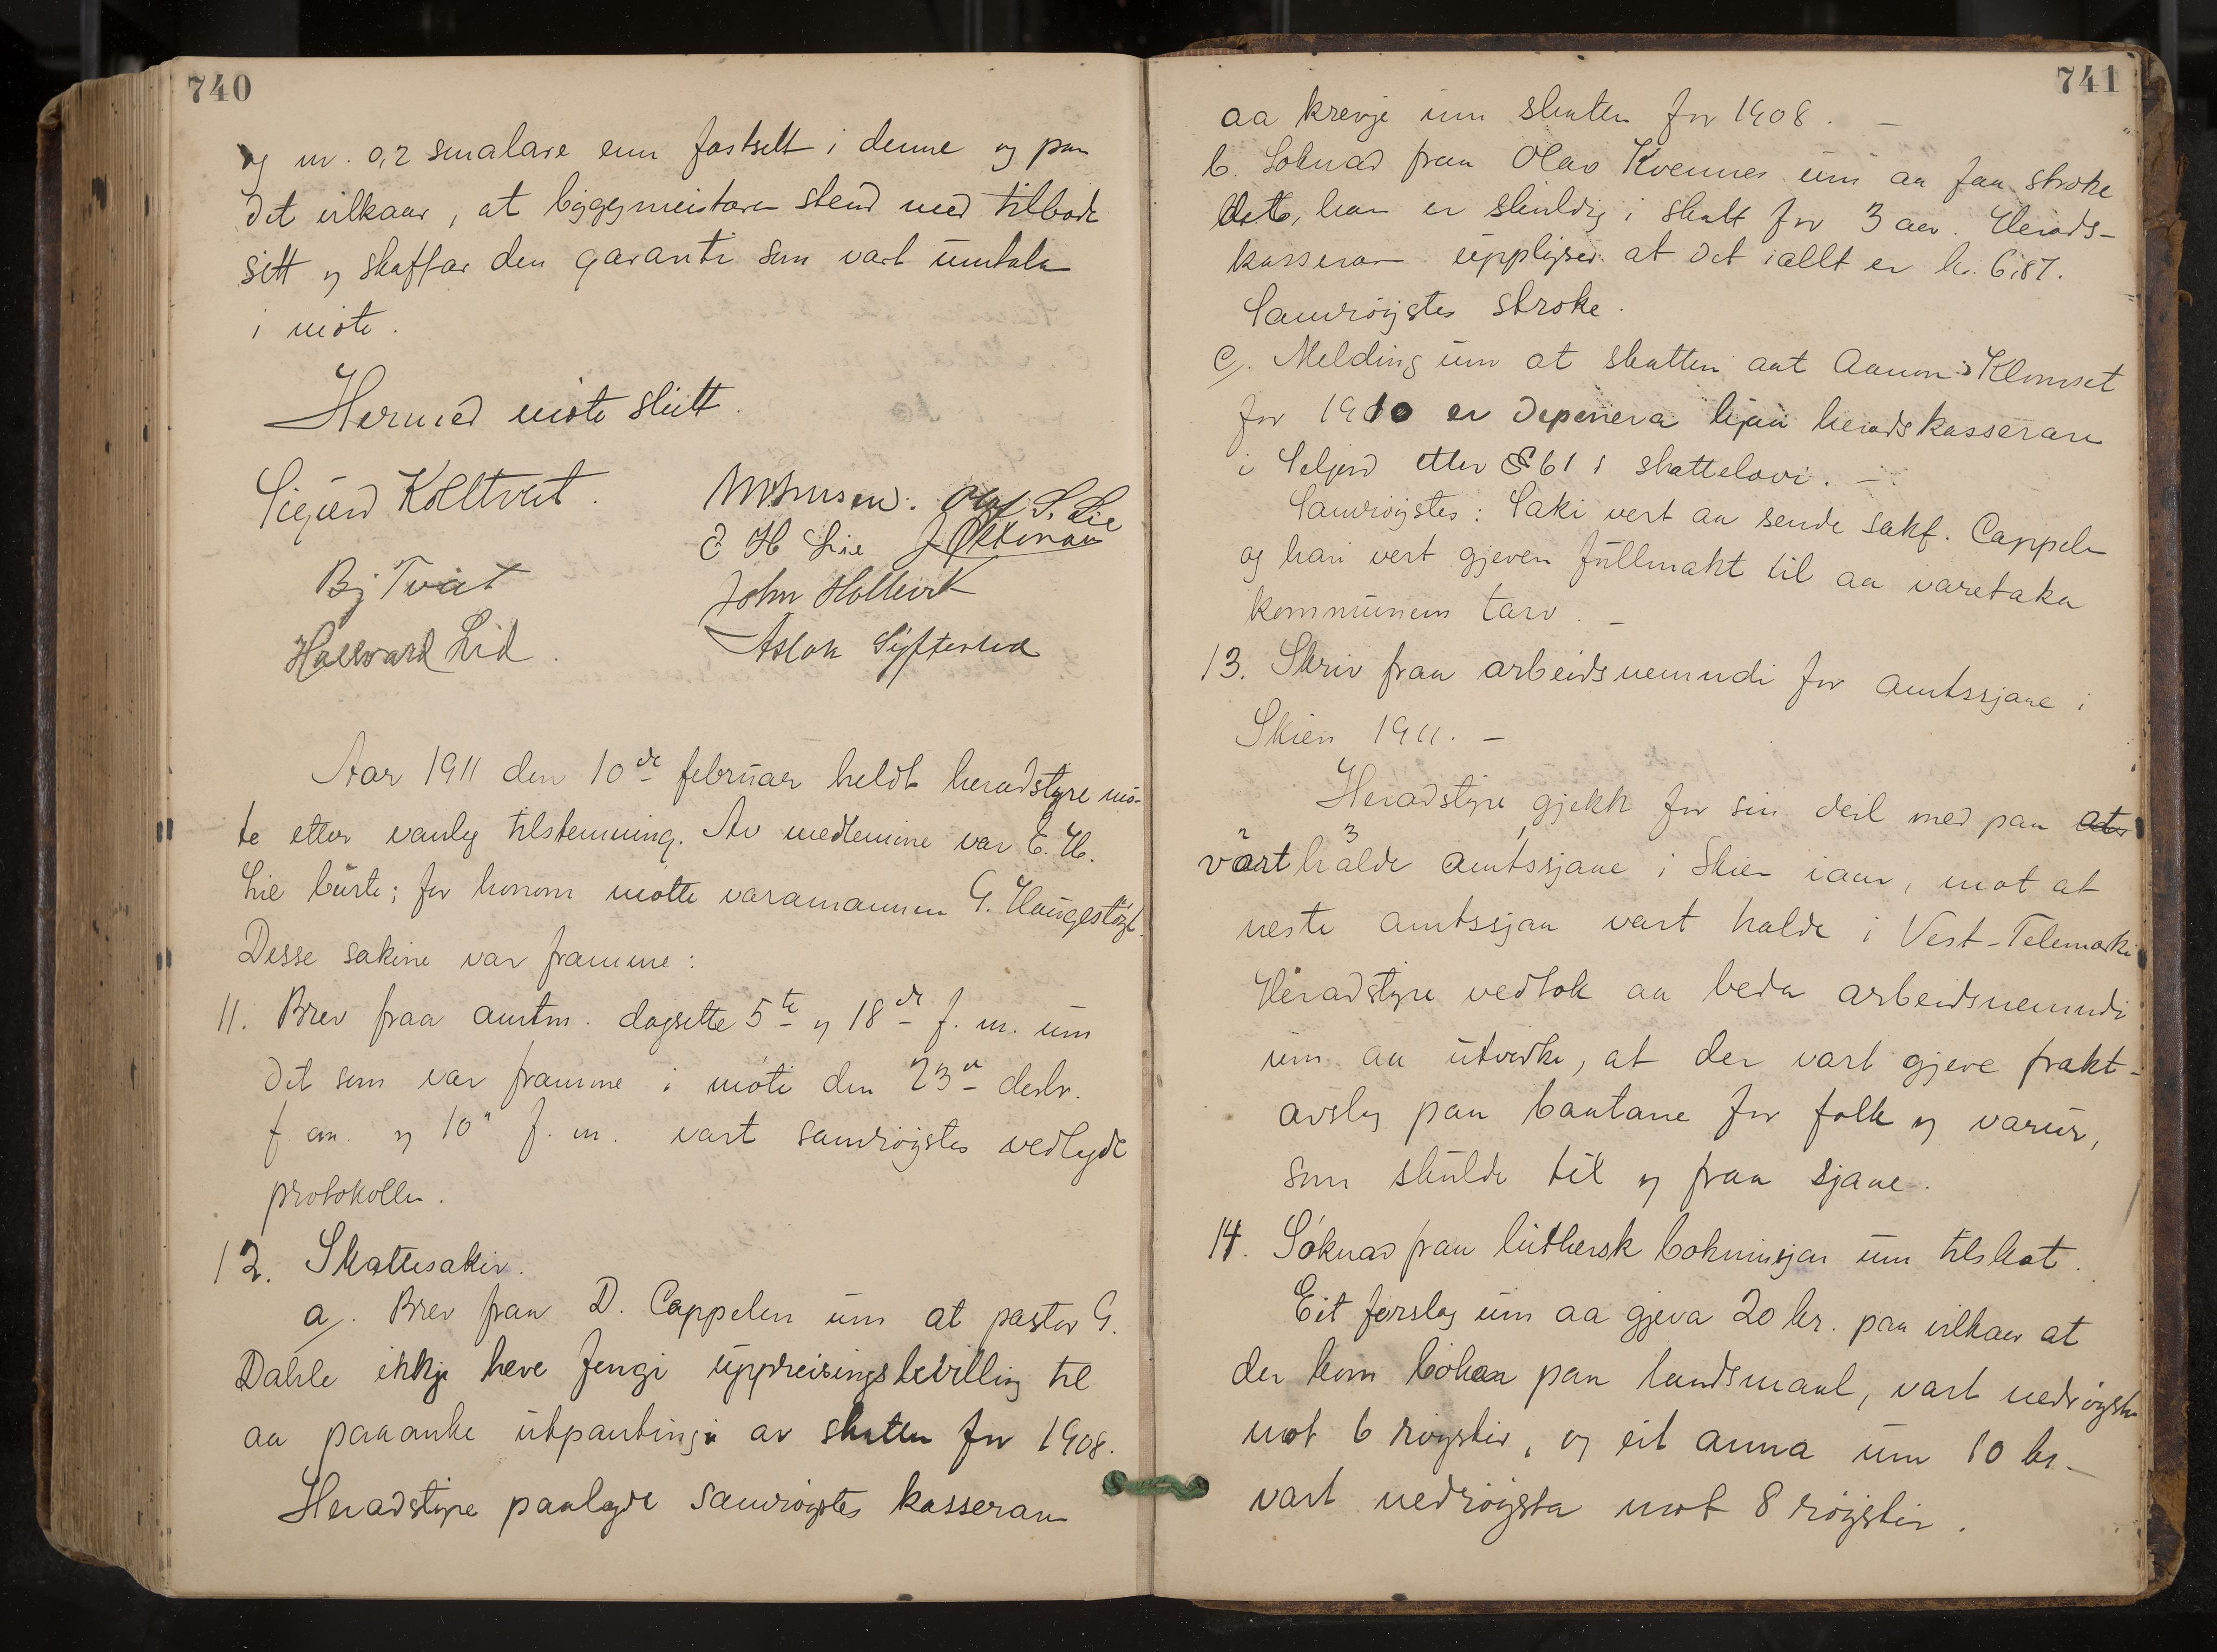 740
og m. 0,2 smalare enn fastsett i denne og paa
det vilkaar, at byggmeistaren stend med tilbode
sitt og skaffar den garanti som vart umtala
i møte.
Hermed møte slutt.
Sigurd Kolltveit.
Olaf S. Lie
E H Lie
Bj Tveit
John Holtvik
Hallvard Lid.
Aslak
Aar 1911 den 10de februar heldt heradstyre mø-
te etter vanleg tilstemning. Av medlemine var E. H.
Lie burte; for honom møtte varamannen G. Haugestøyl.
Desse sakine var framme:
11. Brev fraa amtm. dagsette 5te og 18de f. m. um
det som var framme i møte den 23de desbr.
f. aa. og 10" f. m. vart samrøystes vedlyde
protokollen.
12. Skattesakir.
a/. Brev fraa D. Cappelen um at pastor G.
Dahle ikkje heve fengi uppreisingsbevilling til
aa paaanke utpantingi av skatten for 1908.
Heradstyre paalagde samrøystes kasseraren
741
aa krevje inn skatten for 1908. —
b. Soknad fraa Olav Kvennes um aa faa stroke
det, han er skuldig i skatt for 3 aar. Herads-
kasseraren upplyser at det i allt er kr. 6,87.
Samrøystes stroke.
c/. Melding um at skatten aat Aanon Klomset
for 1910 er deponera hjaa heradskasseraren
i Seljord etter § 61 i skattelovi. —
Samrøystes: Saki vert aa sende sakf. Cappelen
og han vert gjeven fullmakt til aa varetaka
kommunens tarv. —
13. Skriv fraa arbeidsnemndi for amtssjaae i
Skien 1911. —
Heradstyre gjekk for sin deil med paa at
2 3
vart halde amtssjaae i Skien iaar, mot at
neste amtssjaa vart halde i Vest-Telemarki
Heradstyre vedtok aa beda arbeidsnemndi
um aa utvirke, at der vart gjeve frakt-
avslag paa baatane for folk og varur,
som skulde til og fraa sjaae.
14. Søknad fraa luthersk bokmisjon um tilskot.
Eit forslag um aa gjeva 20 kr. paa vilkaar at
der kom bøker paa landsmaal, vart nedrøysta
mot 6 røyster, og eit anna um 10 kr. —
vart nedrøysta mot 8 røyster.